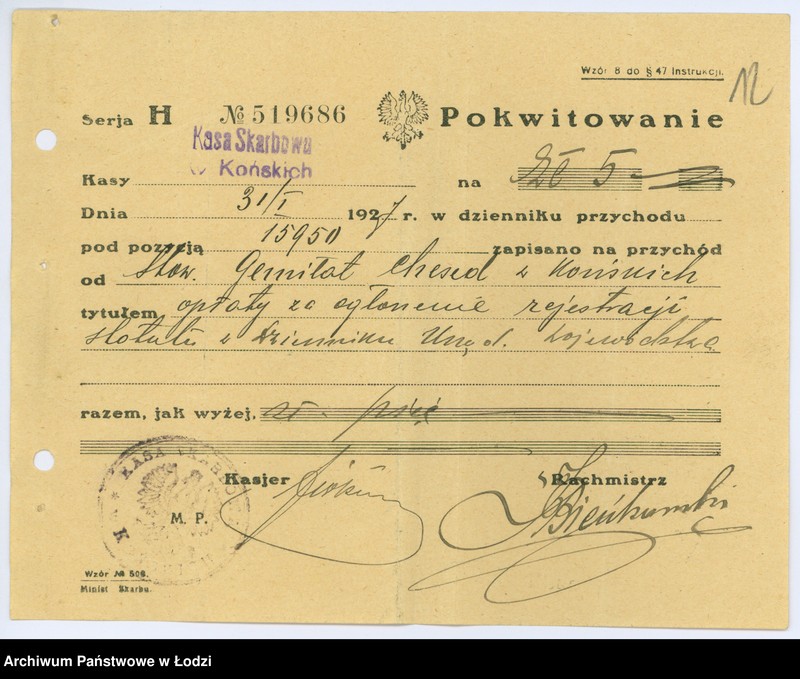 Wzór 8 do § 47 Instrukcji.
12
Serja H № 519686 Pokwitowanie
Kasa Skarbowa
w Końskich
Kasy na Zł 5
Dnia 31/I 1927 r. w dzienniku przychodu
pod pozycją 15950 zapisano na przychód
od Stow. Gemilat Chesed w Końskich
tytułem opłaty za ogłoszenie rejestracji
statutu w Dzienniku Urzęd. Województwa
razem, jak wyżej, zł. pięć
Kasjer Rachmistrz
M. P.
KASA SKARBOWA
Wzór № 506.
Minist Skarbu.
Archiwum Państwowe w Łodzi